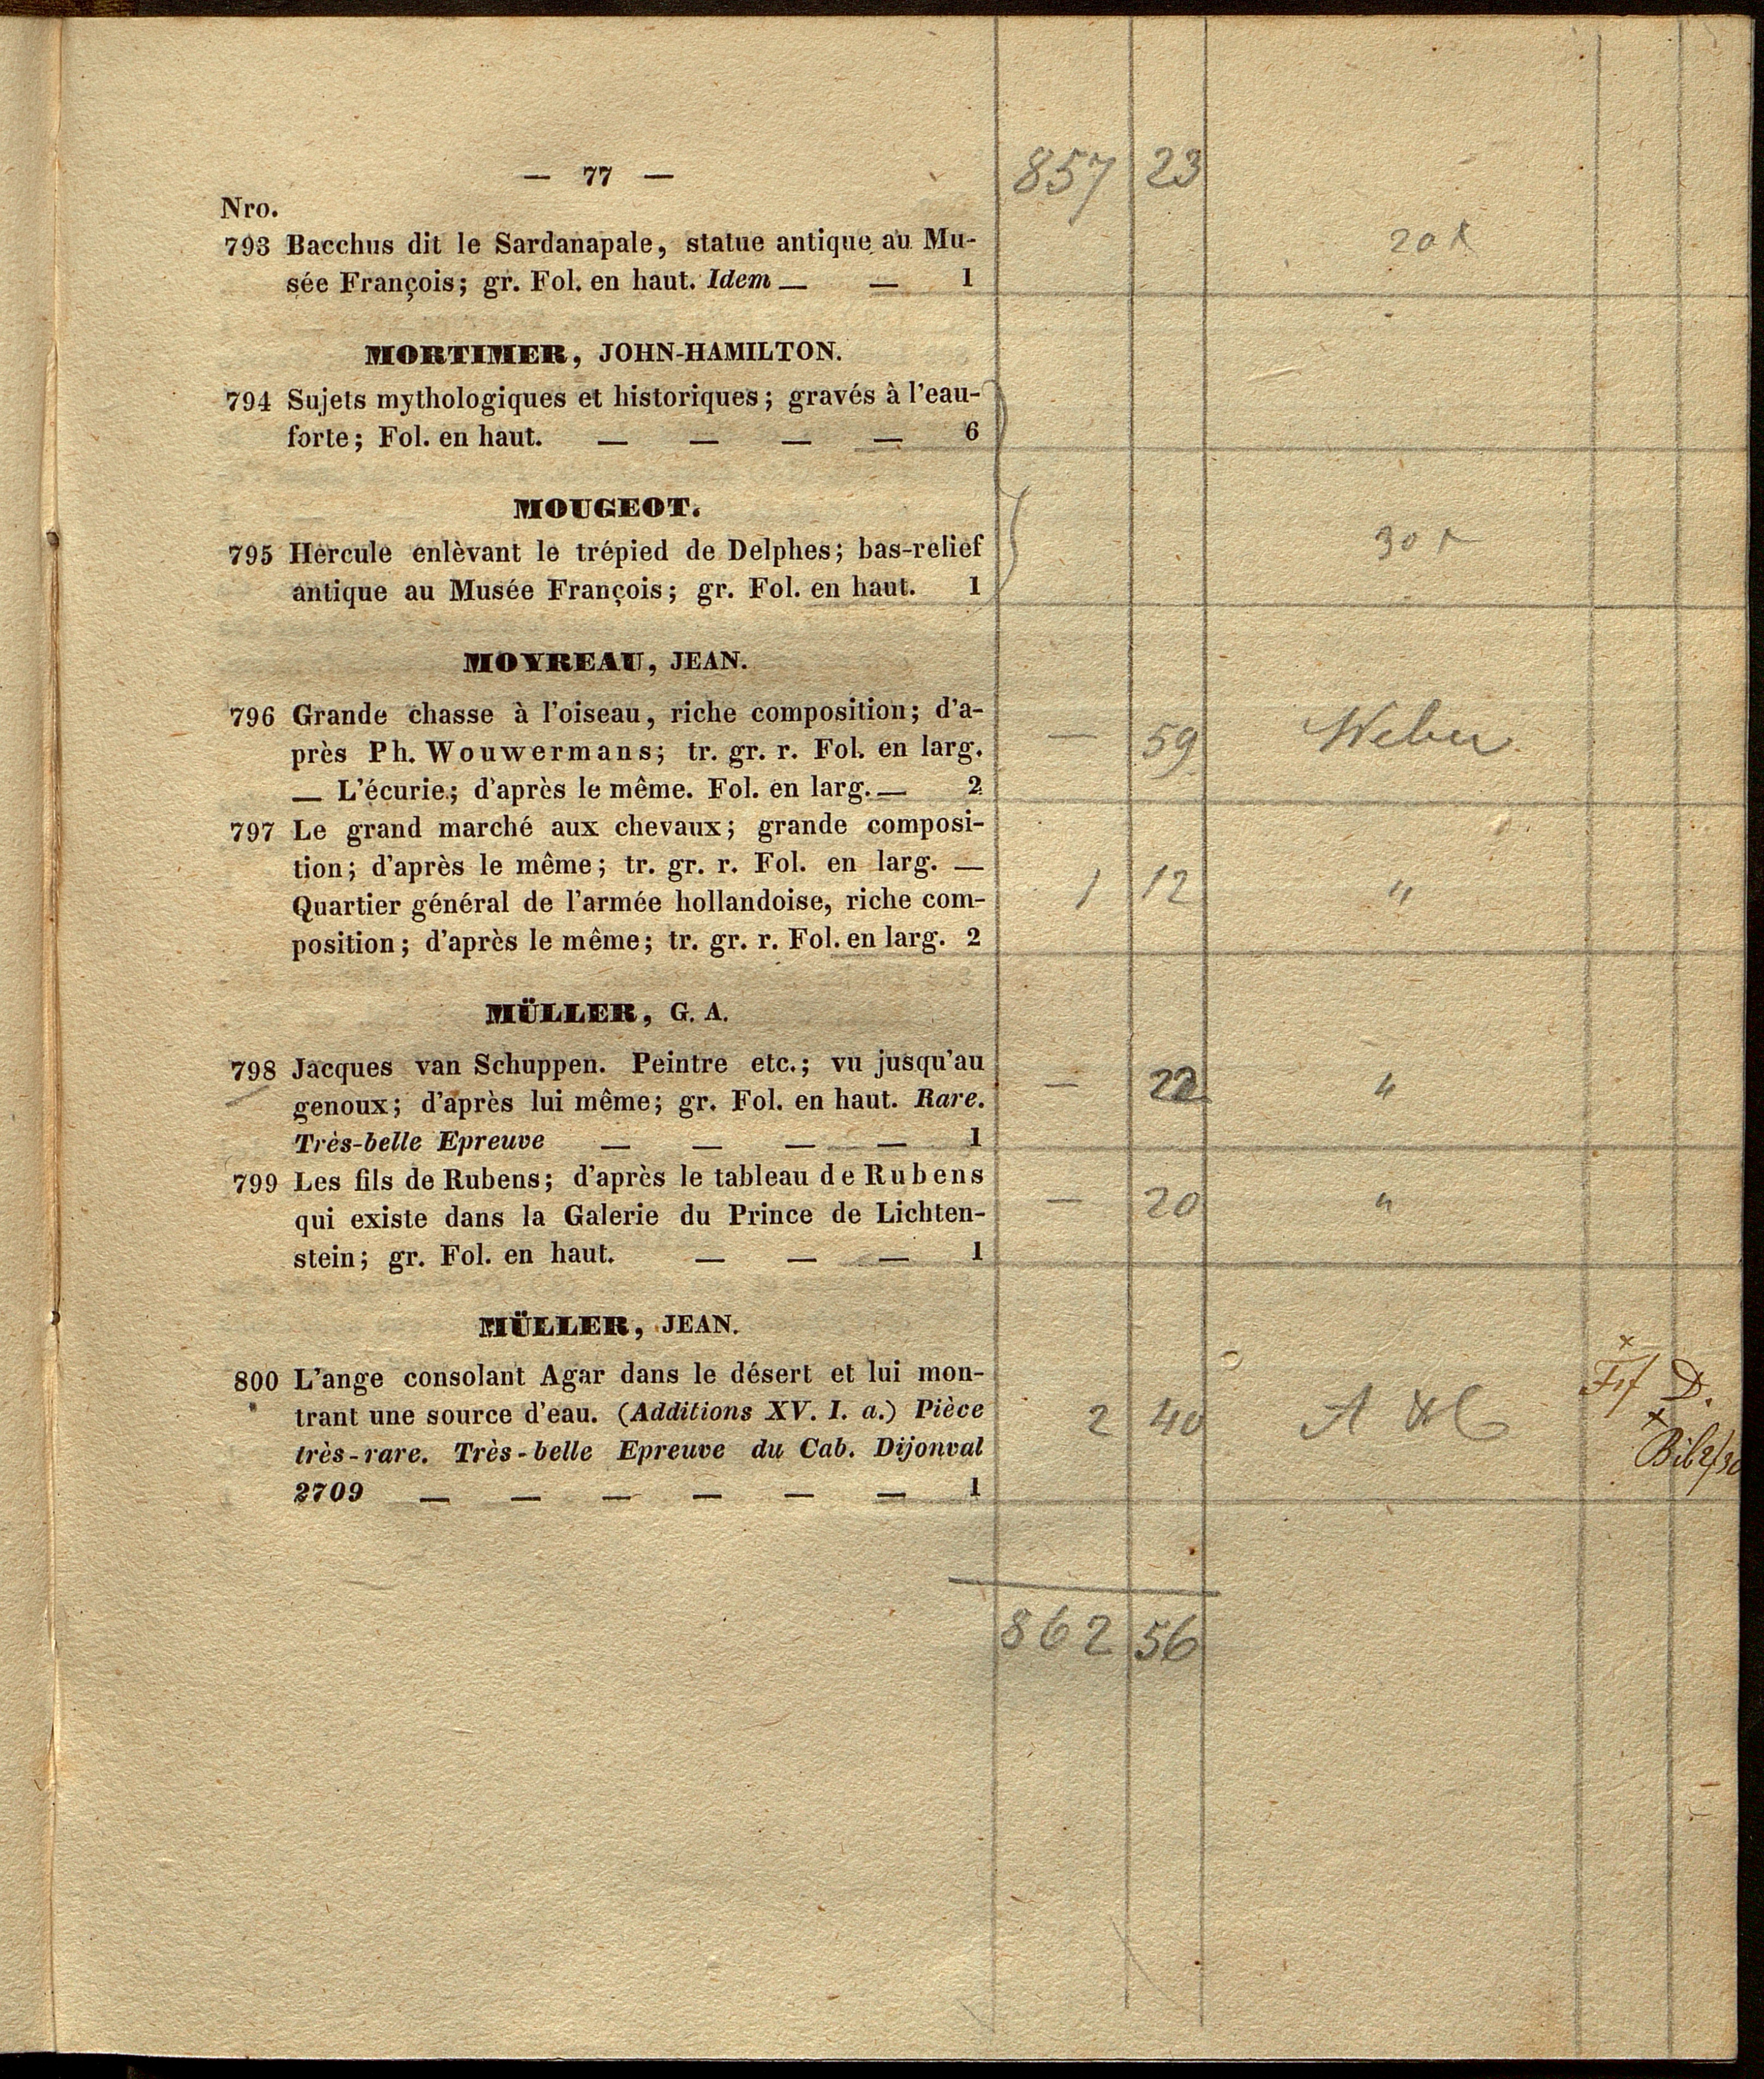 — 77 —
857 23
Nro.
793 Bacchus dit le Sardanapale, statue antique au Mu-
sée François; gr. Fol. en haut. Idem — — 1
20
MORTIMER, JOHN-HAMILTON.
794 Sujets mythologiques et historiques; gravés à l'eau-
forte; Fol. en haut. — — — — 6
MOUGEOT.
795 Hercule enlèvant le trépied de Delphes; bas-relief
antique au Musée François; gr. Fol. en haut. 1
30
MOYREAU, JEAN.
796 Grande chasse à l'oiseau, riche composition; d'a-
près Ph. Wouwermans; tr. gr. r. Fol. en larg.
— L'écurie; d'après le même. Fol. en larg. — 2
— 59 Weber
797 Le grand marché aux chevaux; grande composi-
tion; d'après le même; tr. gr. r. Fol. en larg. —
Quartier général de l'armée hollandoise, riche com-
position; d'après le même; tr. gr. r. Fol. en larg. 2
1 12 "
MÜLLER, G. A.
798 Jacques van Schuppen. Peintre etc.; vu jusqu'au
genoux; d'après lui même; gr. Fol. en haut. Rare.
Très-belle Epreuve — — — — 1
— 22 "
799 Les fils de Rubens; d'après le tableau de Rubens
qui existe dans la Galerie du Prince de Lichten-
stein; gr. Fol. en haut. — — — 1
— 20 "
MÜLLER, JEAN.
800 L'ange consolant Agar dans le désert et lui mon-
trant une source d'eau. (Additions XV. I. a.) Pièce
très-rare. Très-belle Epreuve du Cab. Dijonval
2709 — — — — — — 1
2 40 A
D.
862 56